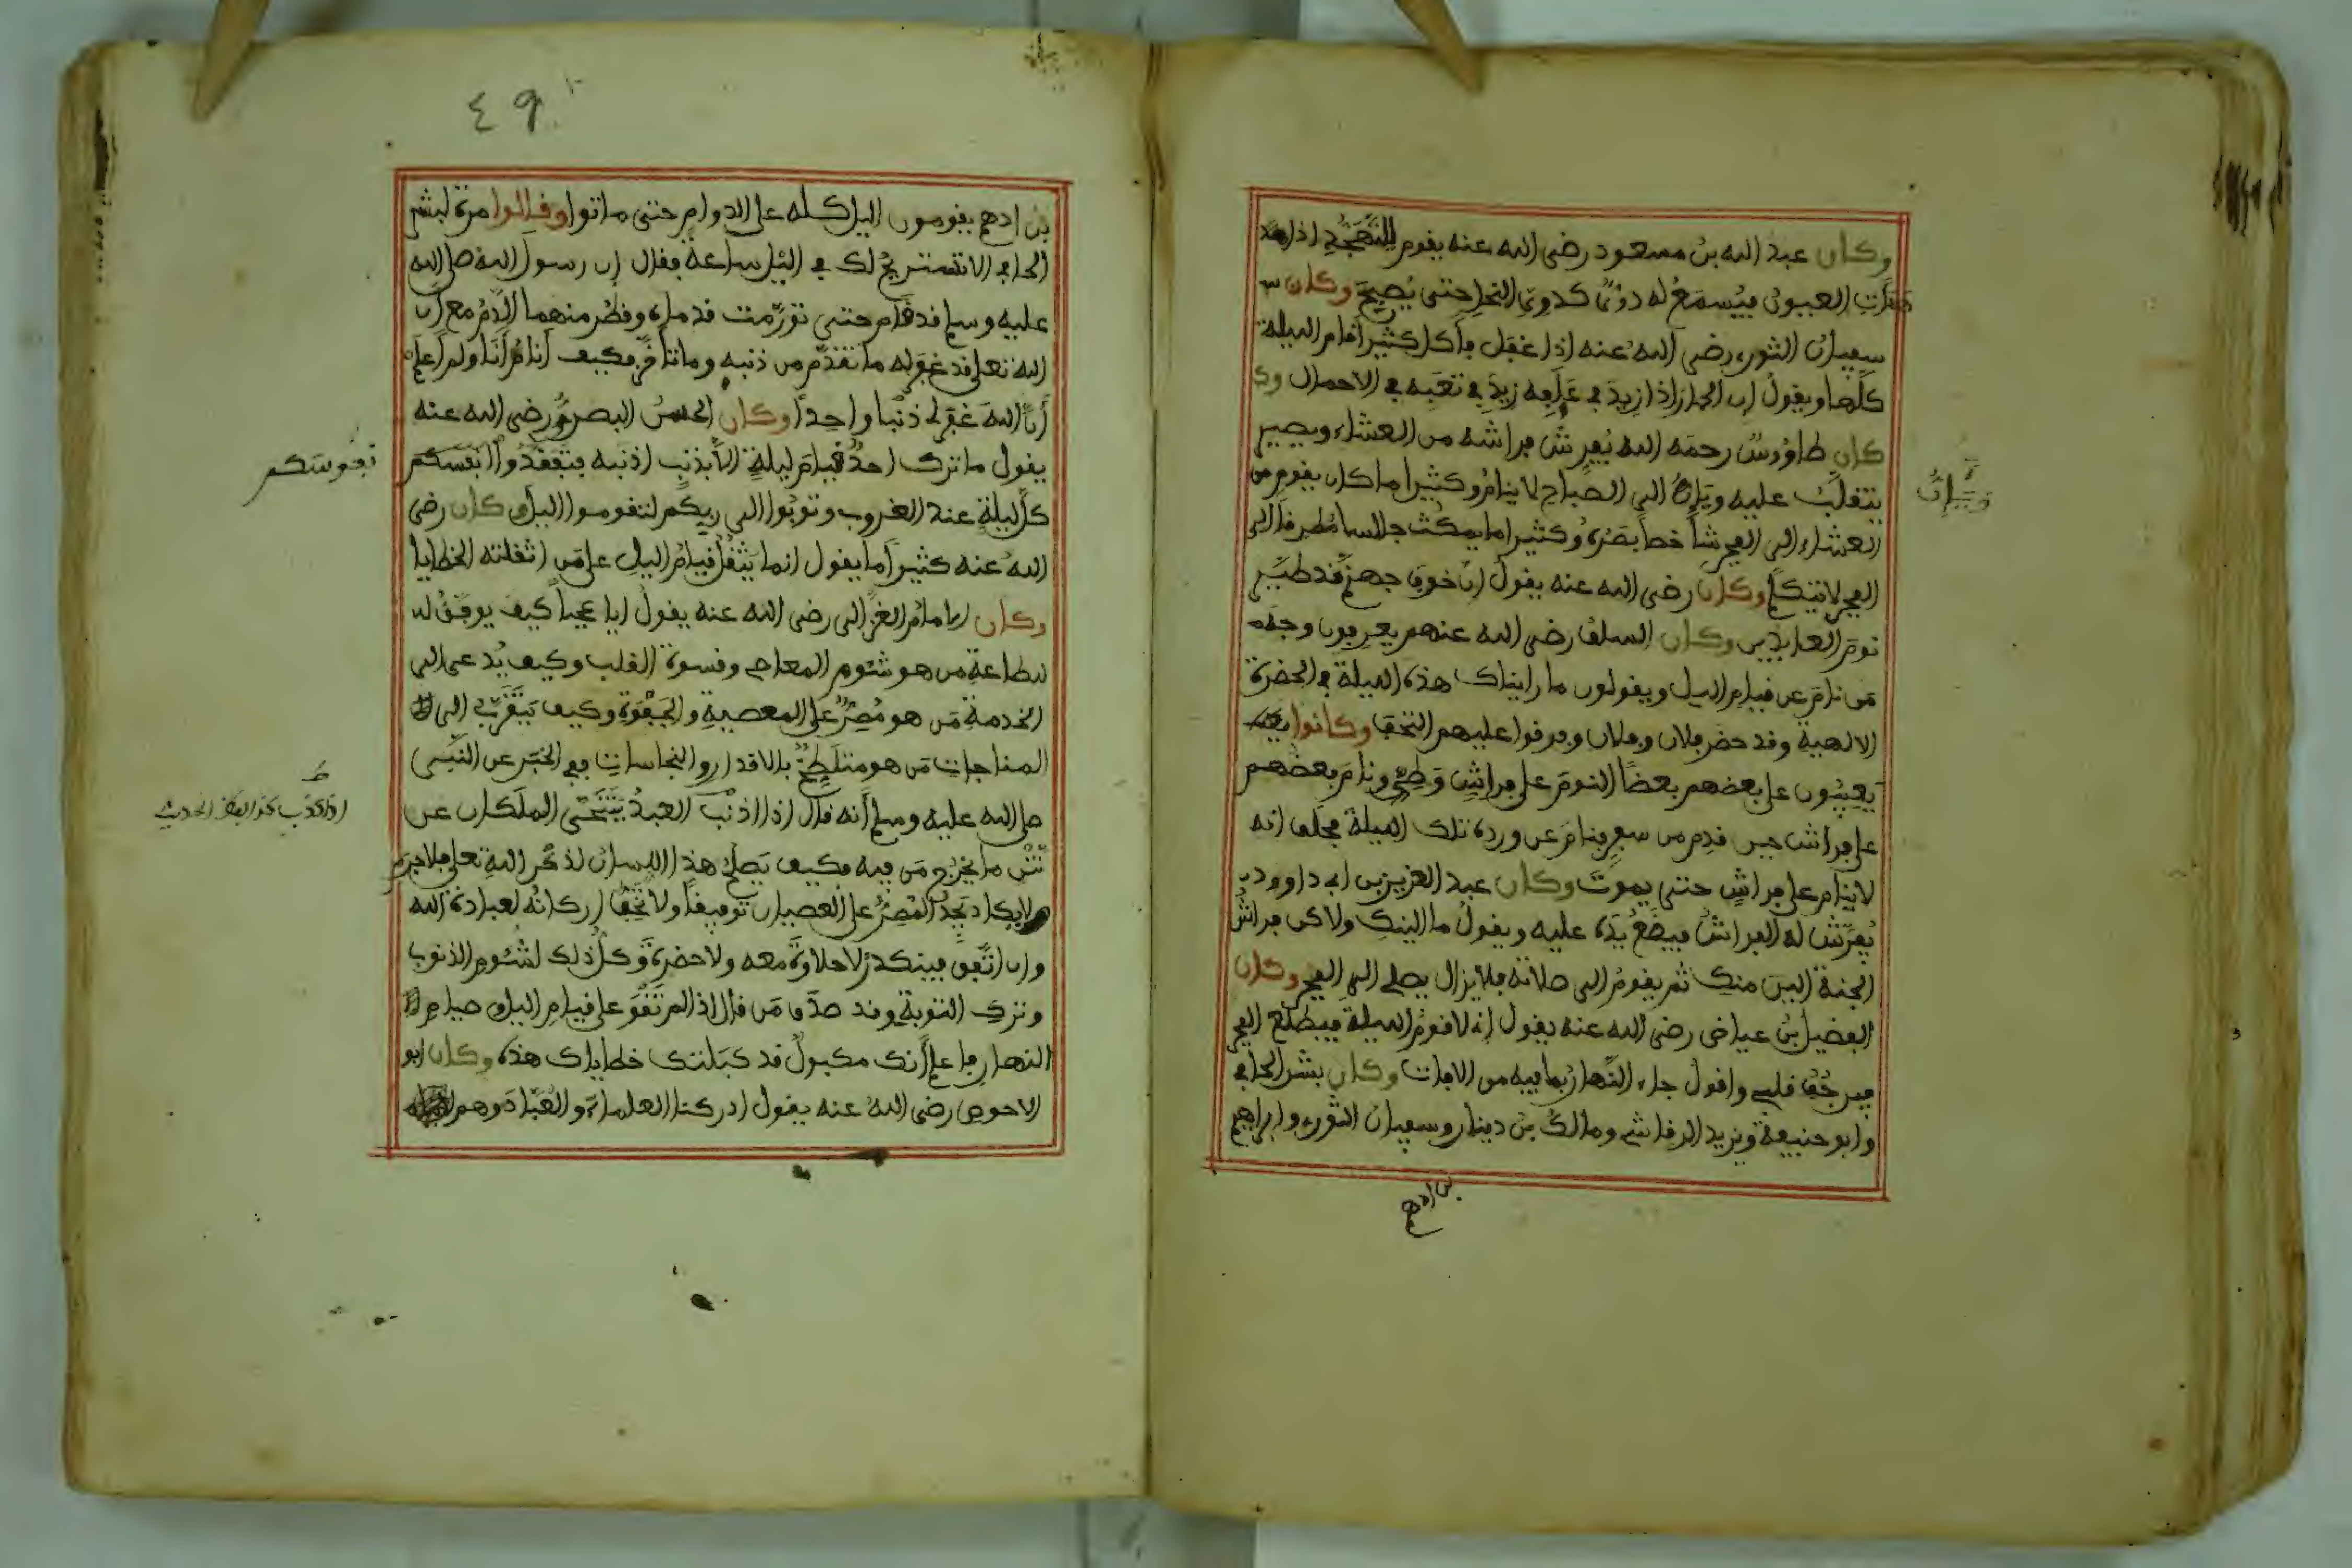 وكان عبد الله بن مسعود رضي الله عنه يقوم للتهجد اذا هد
هدأت العيون فيسمع له دوي كدوي النحل حتى يصبح وكان س
سفيان الثوري رضي الله عنه اذا غفل فأكل كثيرا قام الليلة
كلها ويقول ان الحمار اذا زيد في علفه زيد في تعبه في الاحمال وك
كان طاووس رحمه الله يفرش فراشه من العشاء ويصير
يتقلب عليه ويئن الى الصباح لا ينام وكثيرا ما كان يقوم من
العشاء الى الفجر شاخصا بصره وكثيرا ما يمكث جالسا مطرقا الى
الفجر لا يتكلم وكان رضي الله عنه يقول ان خوف جهنم قد طير
نوم العابدين وكان السلف رضي الله عنهم يعرفون وجه
من نام عن قيام الليل ويقولون ما رايناك هذه الليلة في الحضرة
الالهية وقد حضر فلان وفلان وفرقوا عليهم التحف وكانوا يعـ
يعيبون على بعضهم بعضا النوم على فراش وطيء ونام بعضهم
على فراش حين قدم من سفر فنام عن ورده تلك الليلة فحلف انه
لا ينام على فراش حتى يموت وكان عبد العزيز بن ابي داوود
يفرش له الفراش فيضع يده عليه ويقول ما الينك ولاكن فراش
الجنة الين منك ثم يقوم الى صلاته فلا يزال يصلي الى الفجر وكان
الفضيل بن عياض رضي الله عنه يقول اني لاقوم الليلة فيطلع الفجر
فيرجف قلبي واقول جاء النهار بما فيه من الافات وكان بشر الحافي
وابو حنيفة ويزيد الرقاشي ومالك بن دينار وسفيان الثوري وابراهيم
بن ادهم
٤٩
بن ادهم يقومون الليل كله على الدوام حتى ماتوا وقالوا مرة لبشر
الحافي الا تستريح لك في الليل ساعة فقال ان رسول الله صلى الله
عليه وسلم قد قام حتى تورمت قدماه وقطر منهما الدم مع ان
الله تعلى قد غفر له ما تقدم من ذنبه وما تأخر فكيف أنام أنا ولم أعلم
أن الله غفر لي ذنبا واحدا وكان الحسن البصري رضي الله عنه
يقول ما ترك احد قيام ليلة الا بذنب اذنبه فتفقدوا انفسكم
نفوسكم
كل ليلة عند الغروب وتوبوا الى ربكم لتقوموا الليل وكان رضي
الله عنه كثيرا ما يقول انما يثقل قيام الليل على من اثقلته الخطايا
وكان الامام الغزالي رضي الله عنه يقول ايا عجبا كيف يوفق لـ
لطاعة من هو شئوم المعاصي وقسوة القلب وكيف يدعى الى
الخدمة من هو مصر على المعصية والجفوة وكيف يتقرب الى
المناجات من هو متلطخ بالاقذار والنجاسات ففي الخبر عن النبي
صلى الله عليه وسلم أنه قال اذا اذنب العبد يتنحى الملكان عن
نتن ما يخرج من فيه فكيف يصلح هذا اللسان لذكر الله تعلى فلا جرم
لا يكاد يجد المصر على العصيان توفيقا ولا تخف اركانه لعبادة الله
وان اتفق فبنكد لا حلاوة معه ولا حضرة وكل ذلك لشئوم الذنوب
وترك التوبة وقد صدق من قال اذا لم تقو على قيام الليل وصيام
النهار فاعلم أنك مكبول قد كبلتك خطاياك هذه وكان ابو
الاحوص رضي الله عنه يقول ادركنا العلماء والعباد وهم